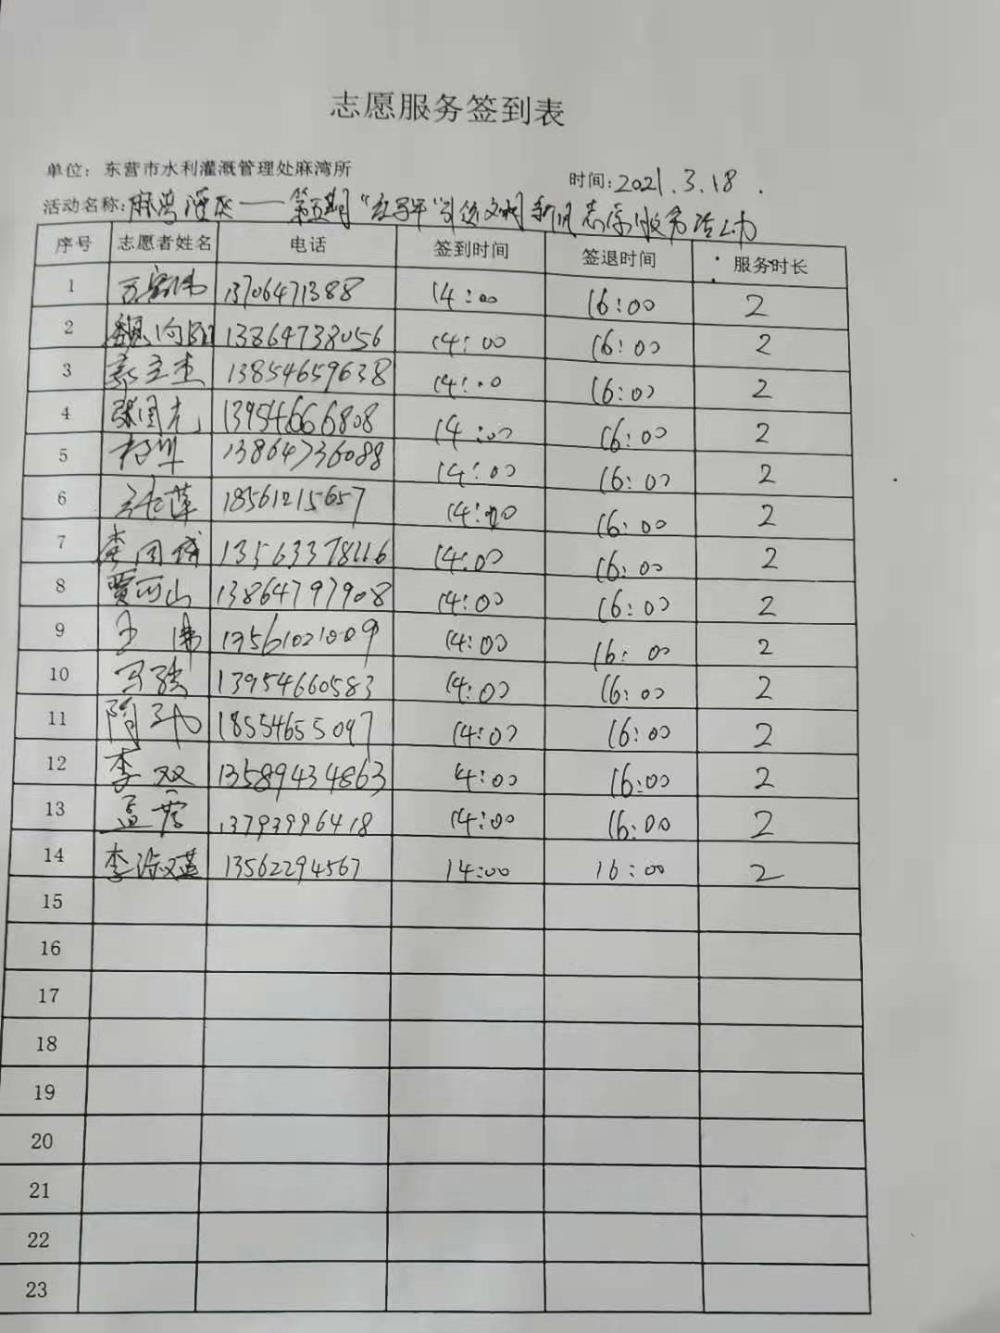 志愿服务签到表
单位：东营市水利灌溉管理处麻湾所
时间：2021.3.18.
活动名称：麻湾灌区——第五期“红马甲”引领文明新风志愿服务活动
序号 志愿者姓名 电话 签到时间 签退时间 服务时长
1 13706471388 14:00 16:00 2
2 13864738056 14:00 16:00 2
3 13854659638 14:00 16:00 2
4 张国光 13954666808 14:00 16:00 2
5 13864736088 14:00 16:00 2
6 张萍 18561215657 14:00 16:00 2
7 13563378116 14:00 16:00 2
8 贾河山 13864797908 14:00 16:00 2
9 王 伟 13561021009 14:00 16:00 2
10 13954660583 14:00 16:00 2
11 18554655097 14:00 16:00 2
12 李 双 13589434863 14:00 16:00 2
13 孟营 13793996418 14:00 16:00 2
14 李淑莲 13562294567 14:00 16:00 2
15
16
17
18
19
20
21
22
23